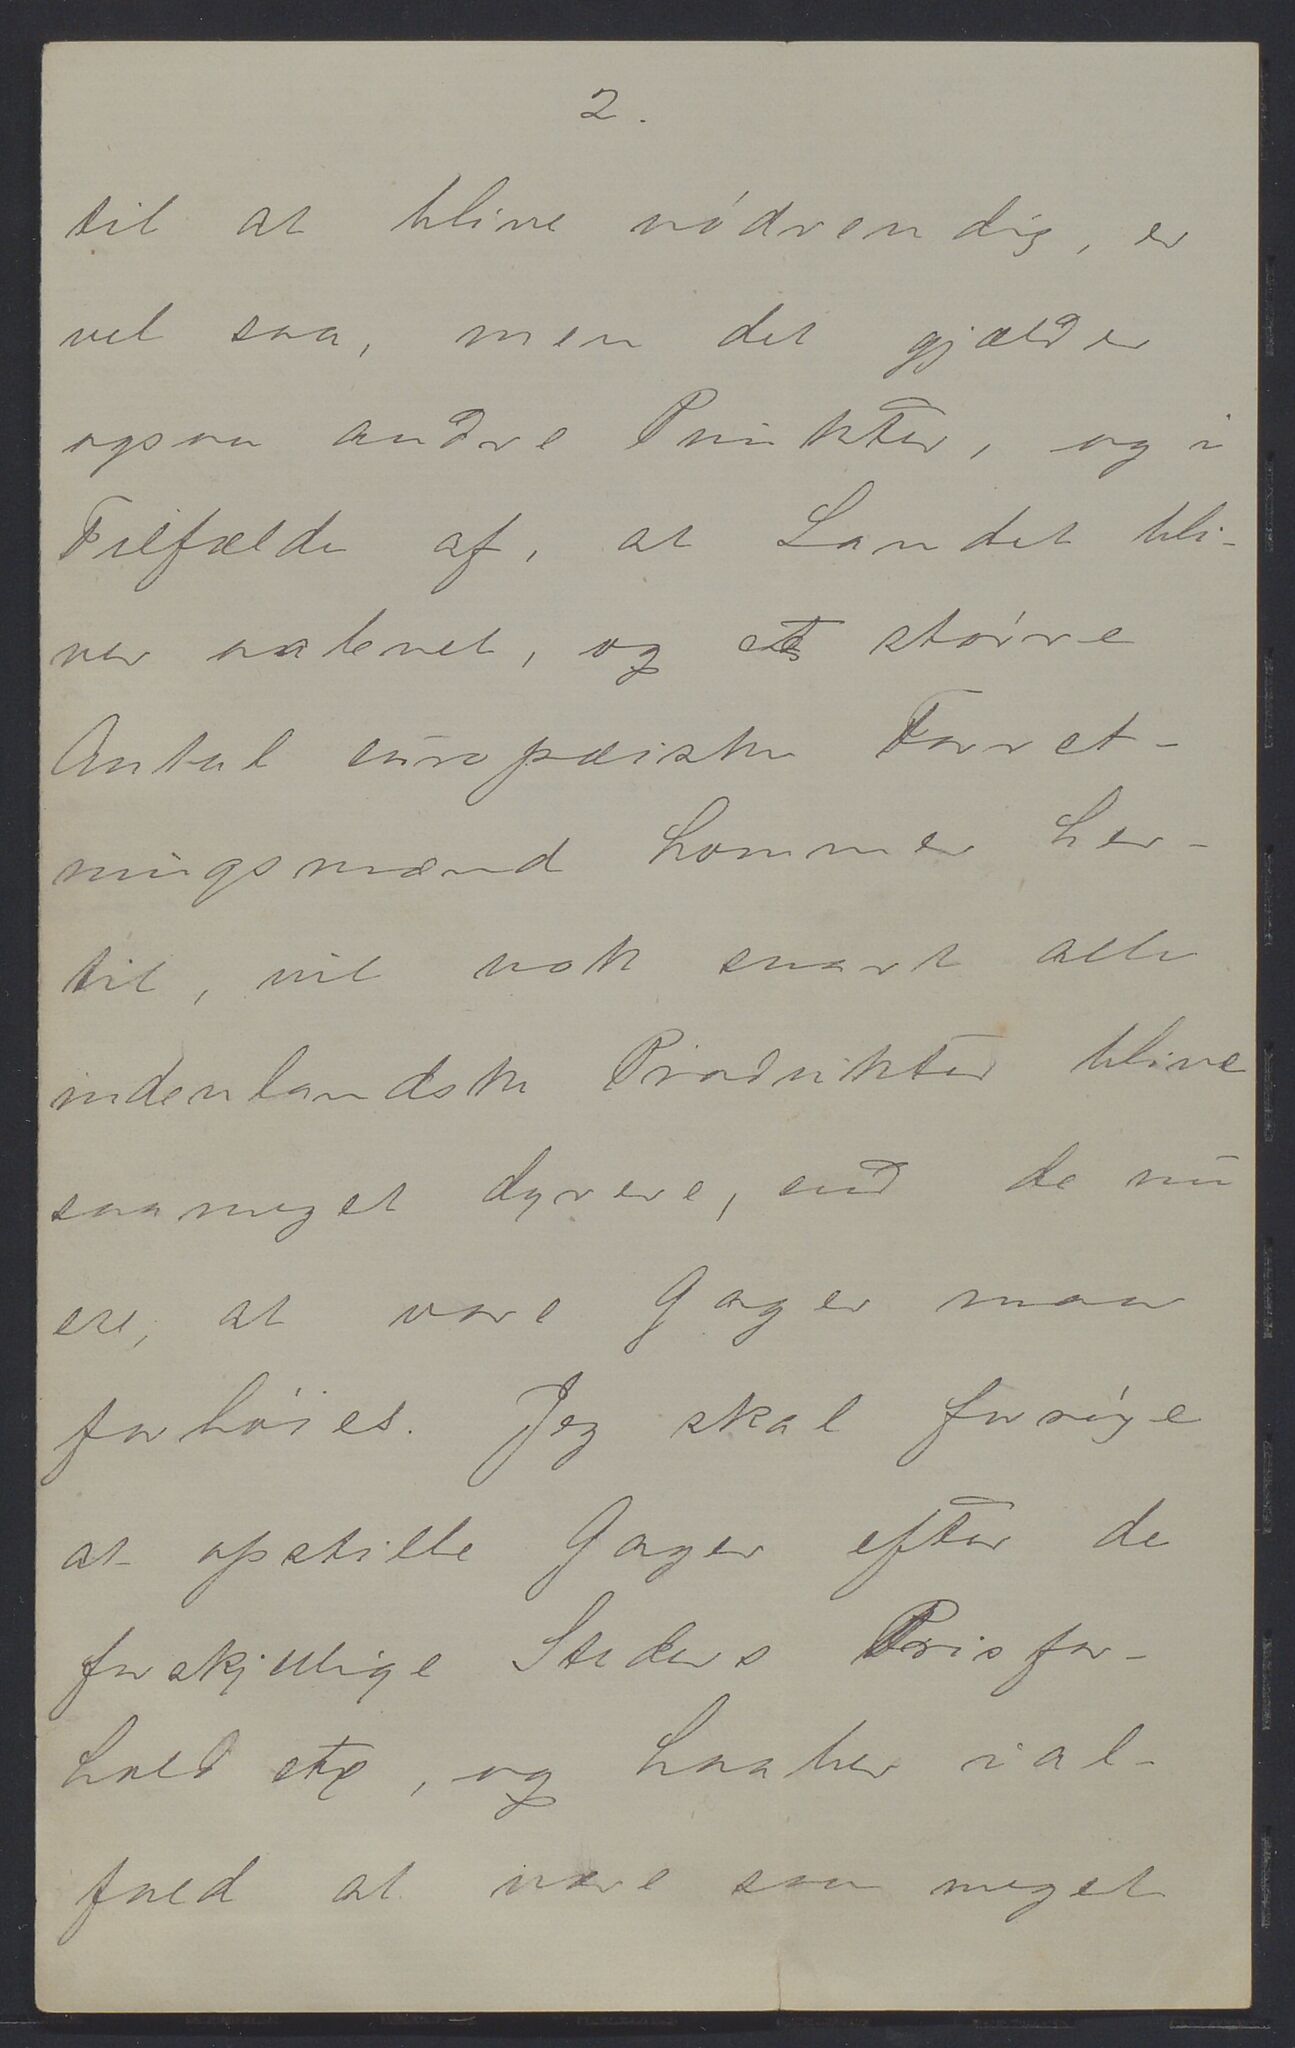 2.
til at blive nódvendig, er
vel saa, men det gjælder
ogsaa andre Punkter, og i
Tilfælde af, at Landet bli-
ver aabnet, og et större
Antal europæiske Forret-
ningsmænd kommer her-
til, vil nok snart alle
indenlandske Produkter blive
saameget dyrere, end de nu
ere, at vore Gager maa
forhöies. Jeg skal forsöge
at opstille Gager efter de
forskjellige Steders Prisfor-
hold etc, og haaber ial-
fald at være saa meget